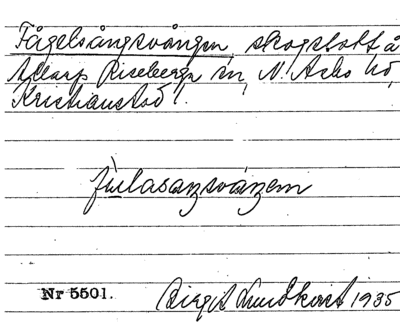 Fågelsångsvången, skogstott å
Allarp Riseberga sn, N. Åsbo hd,
Kristianstad l.
fùlasaŋsváŋem
Nr 5501.
Birgit Lundkvist 1935